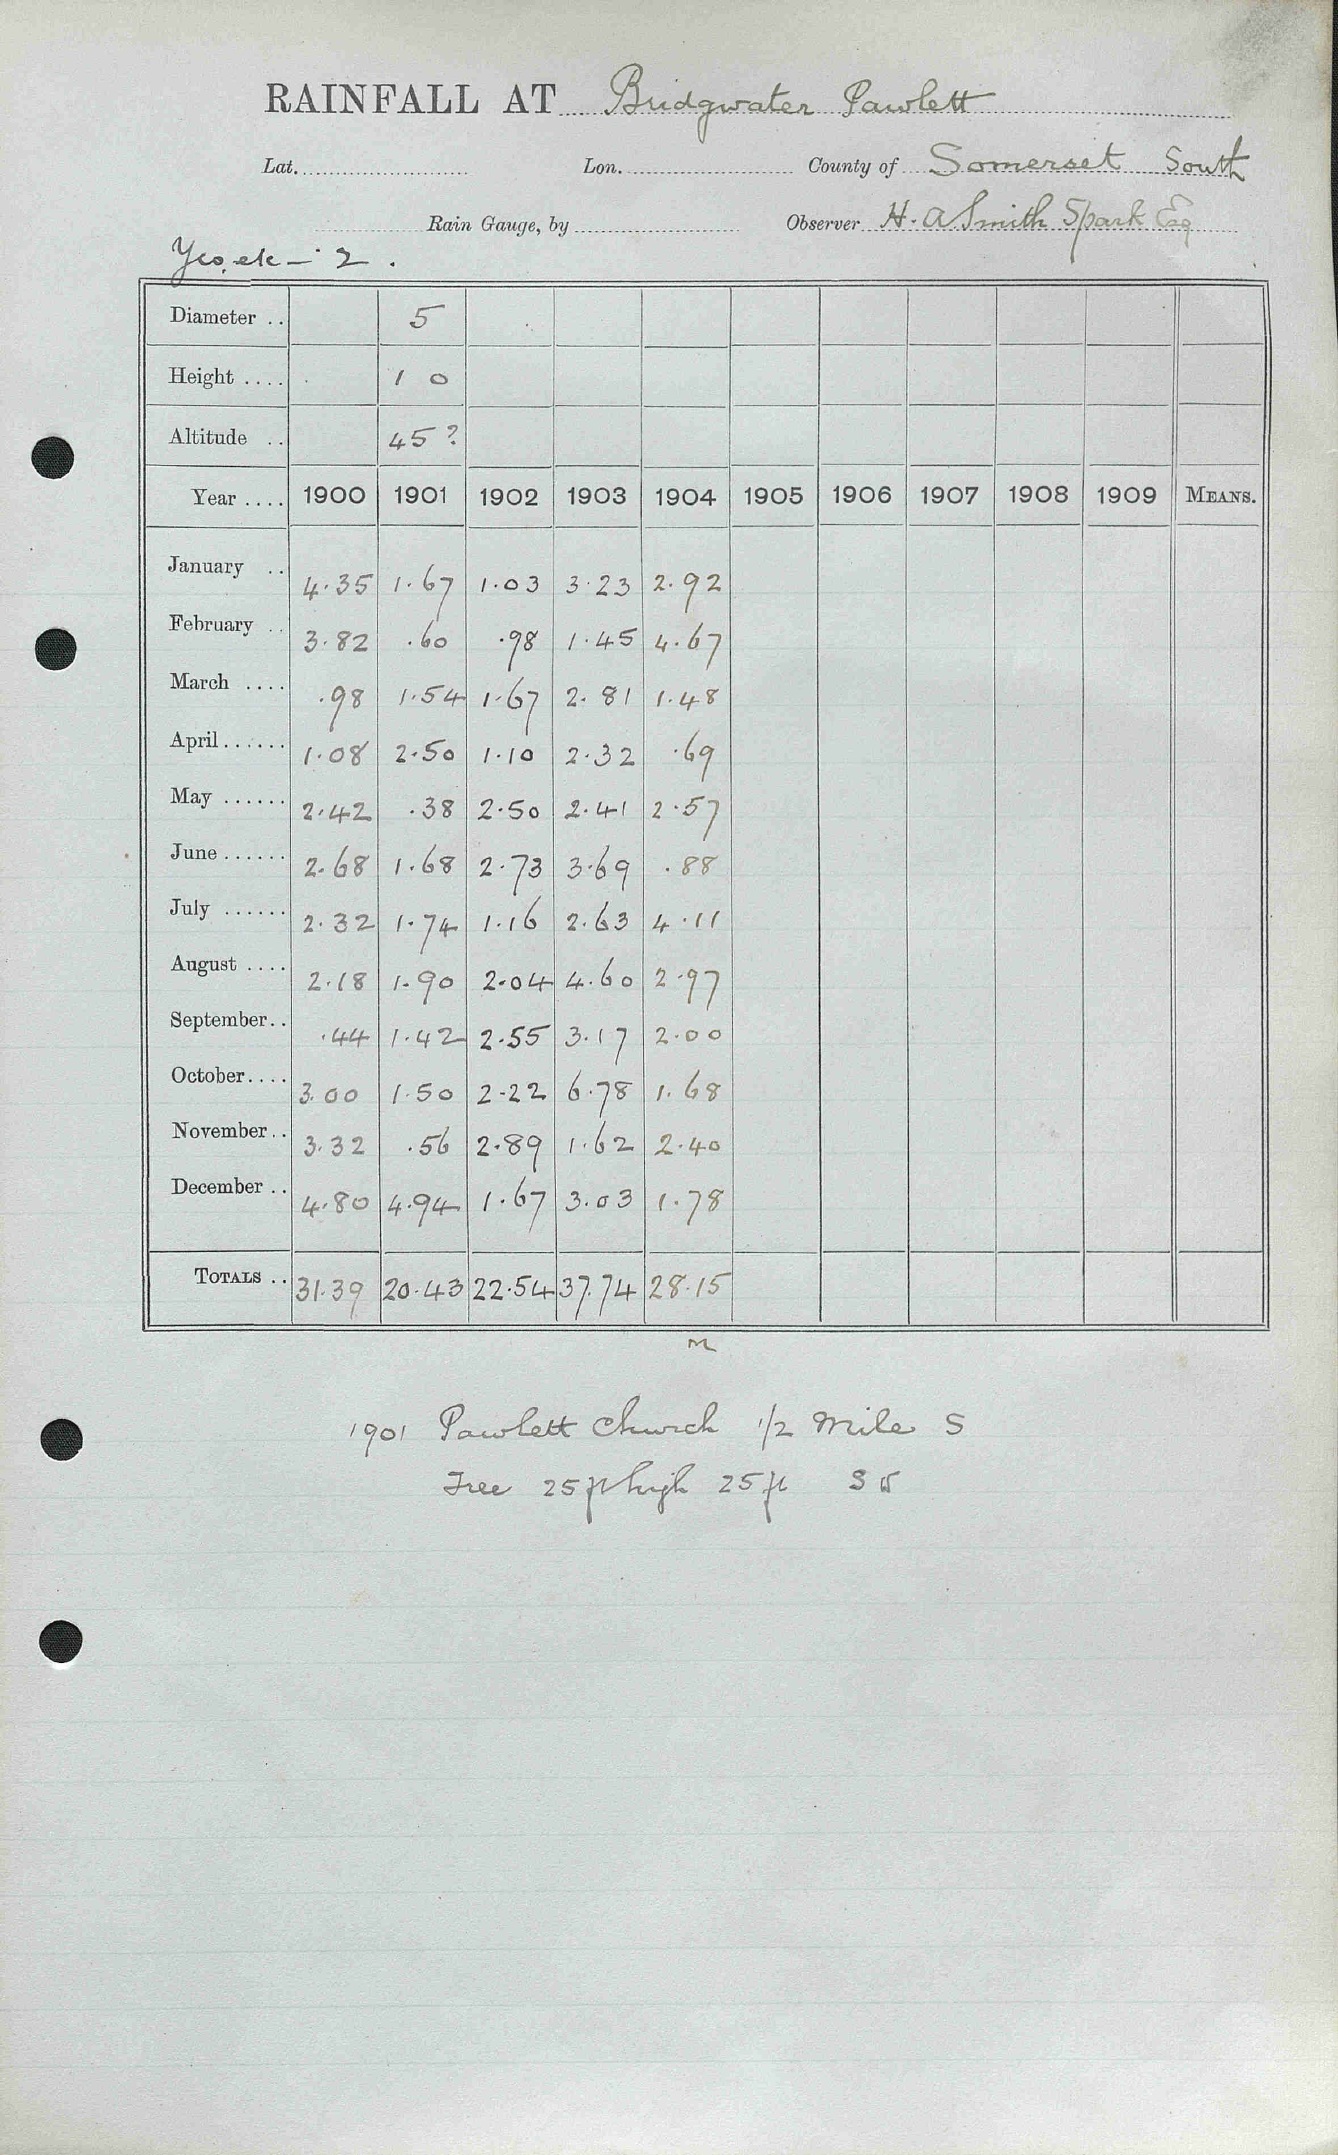 RAINFALL AT Bridgwater Pawlett
Lat. Lon. County of Somerset South
Rain Gauge, by Observer H. A Smith Spark Esq
2.
Diameter .. 5
Height .... 1 0
Altitude .. 45?
Year .... 1900 1901 1902 1903 1904 1905 1906 1907 1908 1909 MEANS.
January .. 4.35 1.67 1.03 3.23 2.92
February .. 3.82 .60 .98 1.45 4.67
March .... .98 1.54 1.67 2.81 1.48
April...... 1.08 2.50 1.10 2.32 .69
May ...... 2.42 .38 2.50 2.41 2.57
June...... 2.68 1.68 2.73 3.69 .88
July ...... 2.32 1.74 1.16 2.63 4.11
August .... 2.18 1.90 2.04 4.60 2.97
September.. .44 1.42 2.55 3.17 2.00
October.... 3.00 1.50 2.22 6.78 1.68
November.. 3.32 .56 2.89 1.62 2.40
December .. 4.80 4.94 1.67 3.03 1.78
TOTALS .. 31.39 20.43 22.54 37.74 28.15
m
1901 Pawlett Church 1/2 Mile S
Tree 25 ft high 25 ft SW